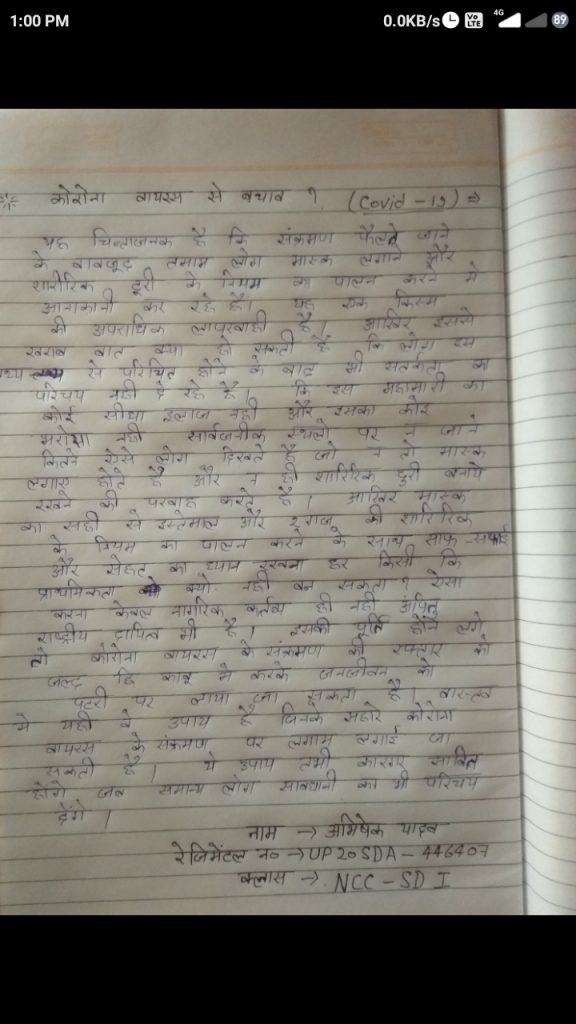 1:00 PM 0.0KB/s Vo LTE 4G 89
कोरोना वायरस से बचाव ? (Covid-19) ⇒
यह चिन्ताजनक है कि संक्रमण फैलते जाने
के बावजूद तमाम लोग मास्क लगाने और
शारीरिक दूरी के नियम का पालन करने में
आनाकानी कर रहे हैं। यह एक किस्म
की अपराधिक लापरवाही है। आखिर इससे
खराब बात क्या हो सकती है कि लोग इस
से परिचित होने के बाद भी सतर्कता का
परिचय नही दे रहे है। कि इस महामारी का
कोई सीधा इलाज नही और इसका कोई
भरोसा नही सार्वजनीक स्थलो पर न जाने
कितने ऐसे लोग दिखते है जो न तो मास्क
लगाए होते है और न ही शारिरिक दुरी बनाये
रखने की परवाह करते है। आखिर मास्क
का सही से इस्तेमाल और २ गज की शारिरिक
के नियम का पालन करने के साथ साफ-सफाई
और सेहत का ध्यान रखना हर किसी कि
प्राथमिकता क्यो नही बन सकता ? ऐसा
करना केवल नागरिक कर्तव्य ही नही अपितु
राष्ट्रीय दायित्व भी है। इसकी पूर्ति होने लगे
तो कोरोना वायरस के संक्रमण की रफ्तार को
जल्द हि काबू मे करके जनजीवन को
पटरी पर लाया जा सकता है। वास्तव
मे यही वे उपाय है जिनके सहारे कोरोना
वायरस के संक्रमण पर लगाम लगाई जा
सकती है। ये उपाय तभी कारगर साबित
होंगे जब समान्य लोग सावधानी का भी परिचय
देंगे।
नाम → अभिषेक यादव
रेजिमेंटल न० → UP20SDA-446407
क्लास → NCC-SD I